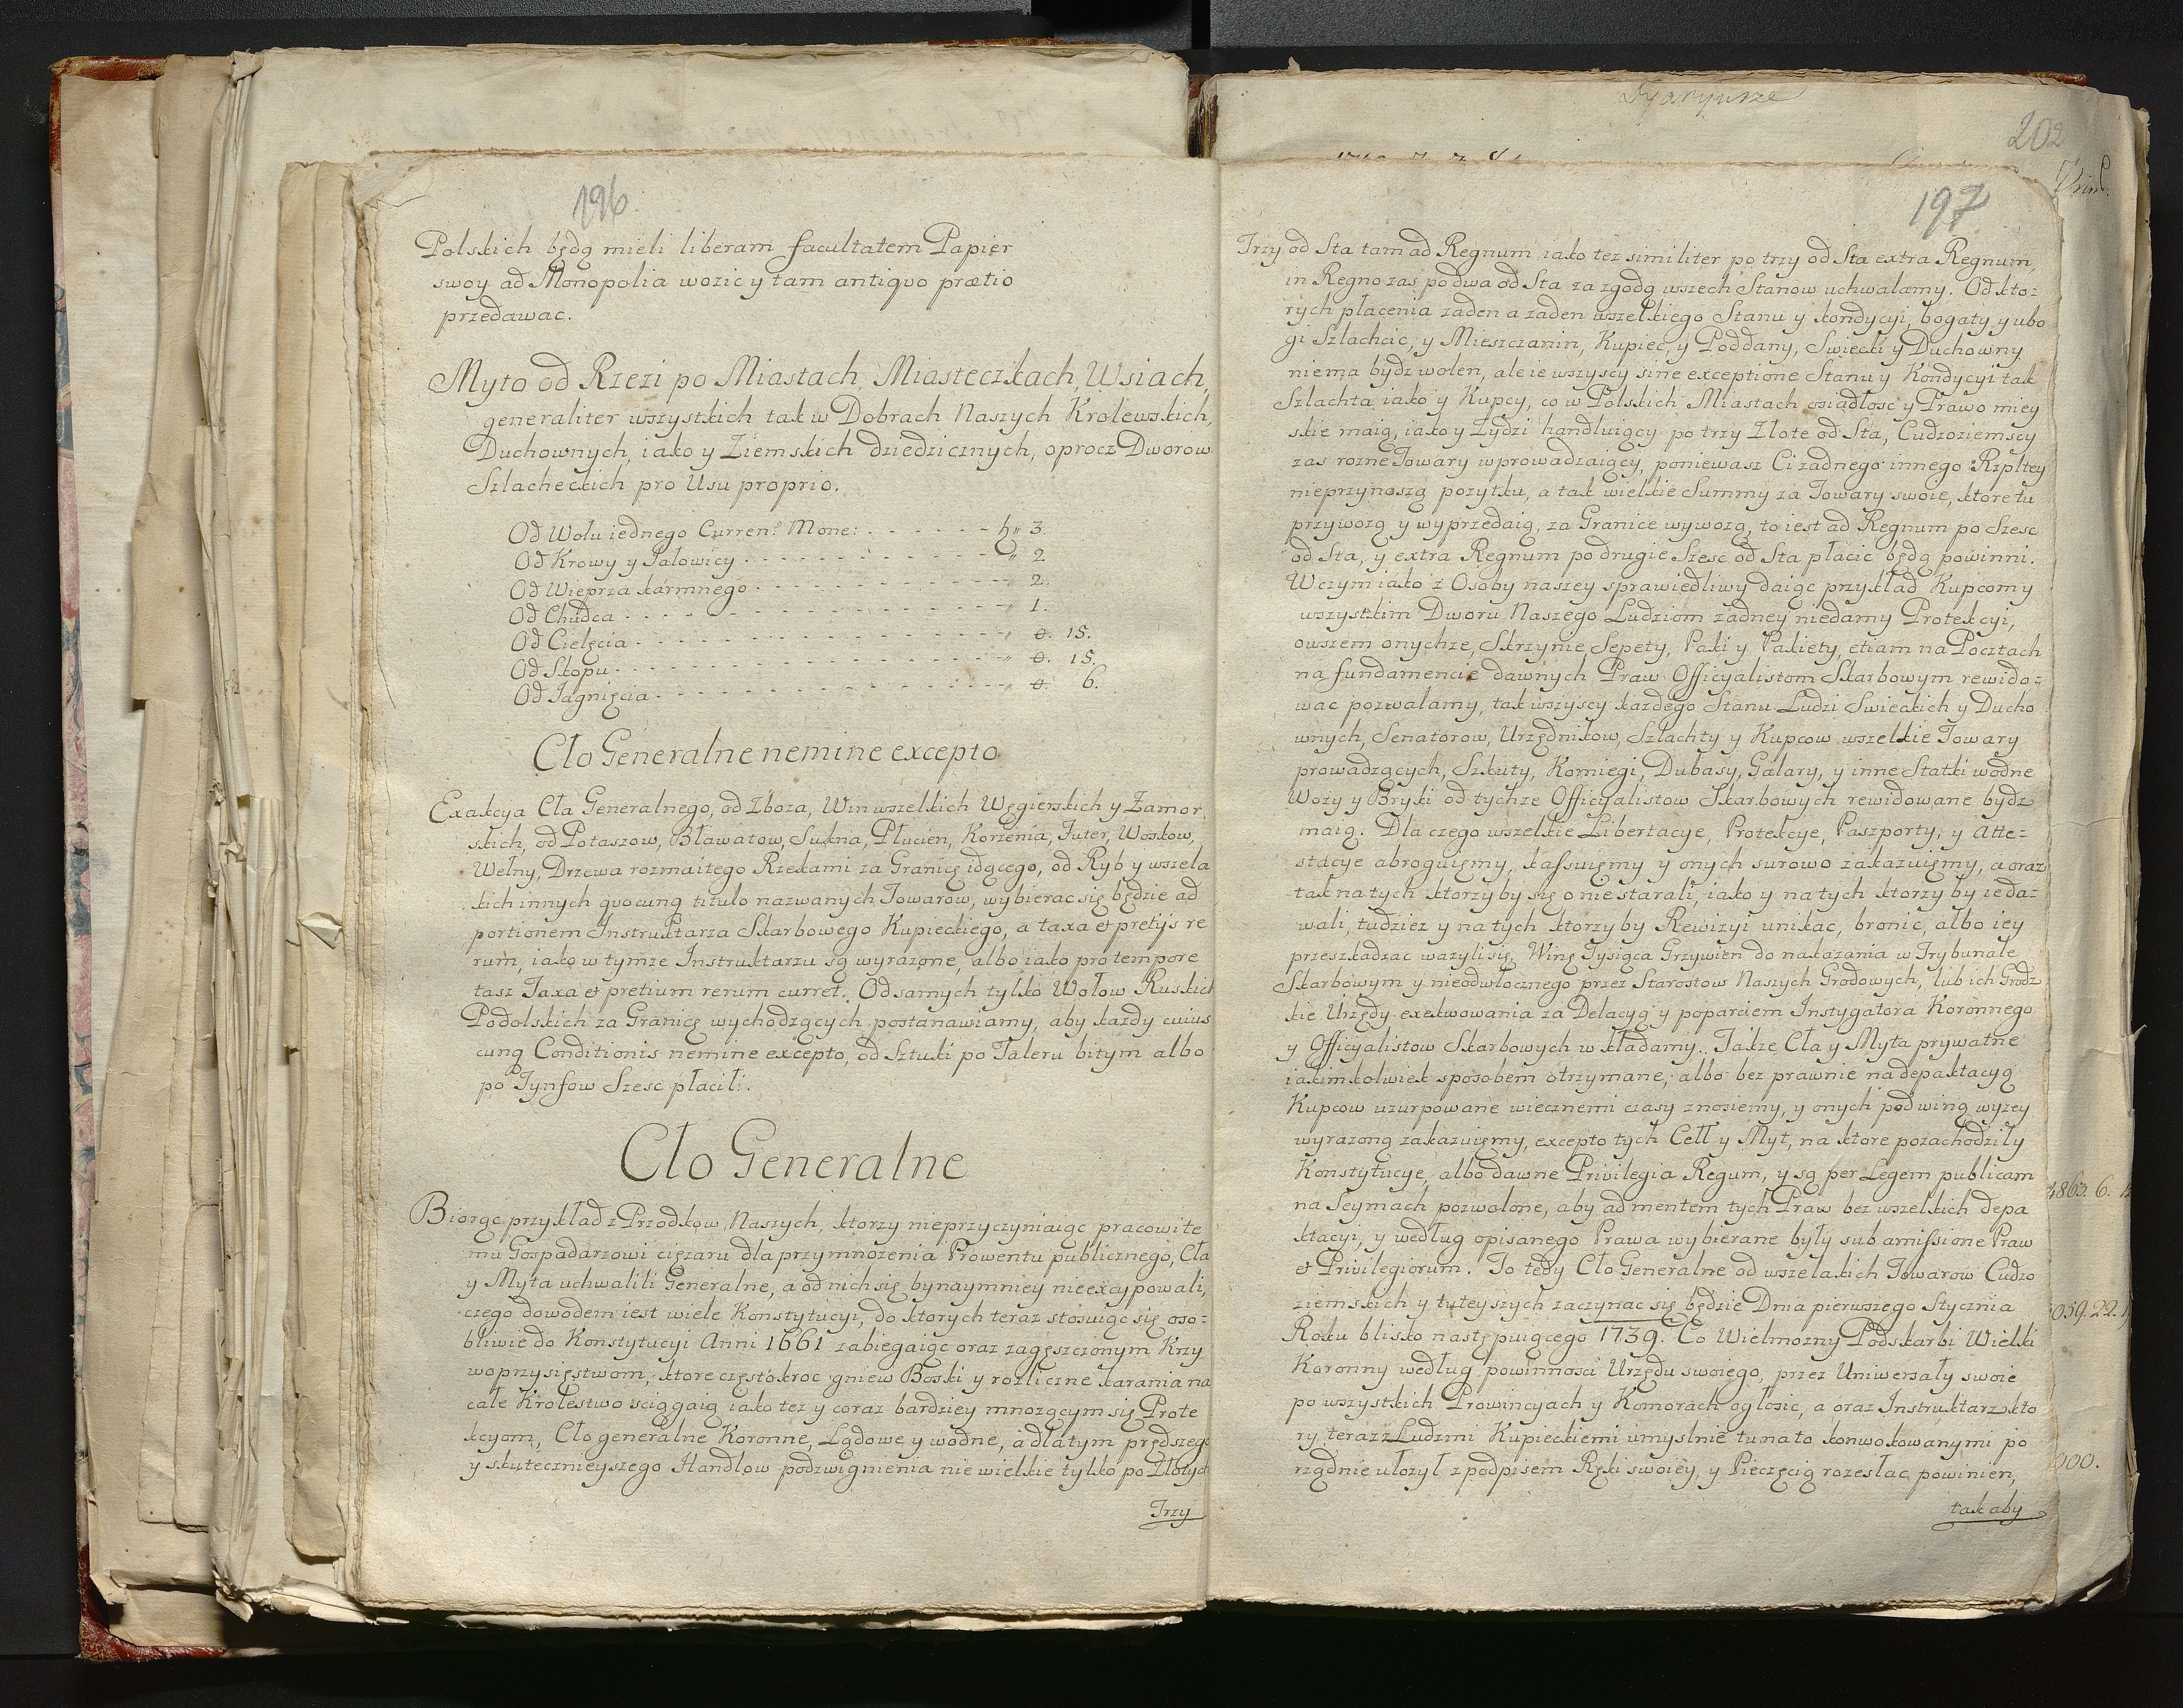 196.
Polskich będą mieli liberam facultatem Papier
swoy ad Monopolia wozic y tam antiquo prætio
przedawac.
Myto od Rzezi po Miastach, Miasteczkach, Wsiach,
generaliter wszystkich tak w Dobrach Naszych Krolewskich,
Duchownych, iako y Ziemskich dziedzicznych, oprocz Dworow
Szlacheckich pro Usu proprio.
Od Wołu iednego Curren: Mone: - - - - - - f „ 3.
Od Krowy y Jałowicy - - - - - - „ 2
Od Wieprza karmnego - - - - - - „ 2.
Od Chudca - - - - - - „ 1.
Od Cielęcia - - - - - - „ 0. 15.
Od Skopu - - - - - - „ 0. 15.
Od Jagnięcia - - - - - - „ 0. 6.
Cło Generalne nemine excepto
Exakcya Cła Generalnego, od Zboza, Win wszelkich Węgierskich y Zamor
skich, od Potaszow, Bławatow, Sukna, Płucien, Korzenia, Futer, Woskow,
Wełny, Drzewa rozmaitego Rzekami za Granicę idącego, od Ryb y wszela
kich innych quocunq titulo nazwanych Towarow, wybierac się będzie ad
portionem Instruktarza Skarbowego Kupieckiego, a taxa et pretijs re
rum, iako w tymze Instruktarzu są wyrazone, albo iako pro tempore
tasz Taxa et pretium rerum curret. Od samych tylko Wołow Ruskich
Podolskich za Granicę wychodzących postanawiamy, aby kazdy cuius
cunq Conditionis nemine excepto, od Sztuki po Taleru bitym albo
po Tynfow Szesc płacili.
Cło Generalne
Biorąc przykład z Przodkow Naszych, ktorzy nieprzyczyniaiąc pracowite
mu Gospadarzowi cięzaru dla przymnozenia Prowentu publicznego, Cła
y Myta uchwalili Generalne, a od nich się bynaymniey nieexcypowali,
czego dowodem iest wiele Konstytucyi, do ktorych teraz stosuiąc się oso-
bliwie do Konstytucyi Anni 1661 zabiegaiąc oraz zagęszczonym Krzy
woprzysięstwom, ktore częstokroc gniew Boski y rozliczne karania na
całe Krolestwo sciągaią iako tez y coraz bardziey mnozącym się Prote
kcyom, Cło generalne Koronne, Lądowe y wodne, a dla tym prędszego
y skutecznieyszego Handlow podzwignienia nie wielkie tylko po Złotych
Trzy
Dyaryusze
202
197
Trzy od Sta tam ad Regnum iako tez similiter po trzy od Sta extra Regnum,
in Regno zas po dwa od Sta za zgodą wszech Stanow uchwalamy. Od kto-
rych płacenia zaden a zaden wszelkiego Stanu y kondycyi, bogaty y ubo
gi Szlachcic, y Mieszczanin, Kupiec, y Poddany, Swiecki y Duchowny
niema bydz wolen, ale ie wszyscy sine exceptione Stanu y Kondycyi tak
Szlachta iako y Kupcy, co w Polskich Miastach osiadłosc y Prawo miey
skie maią, iako y Zydzi handluiący po trzy Złote od Sta, Cudzoziemscy
zas rozne Towary wprowadzaiący, poniewasz Ci zadnego innego Rzpltey
nieprzynoszą pozytku, a tak wielkie Summy za Towary swoie, ktore tu
przywozą y wyprzedaią, za Granice wywozą, to iest ad Regnum po Szesc
od Sta, y extra Regnum po drugie Szesc od Sta płacic będą powinni.
W czym iako z Osoby naszey sprawiedliwy daiąc przykład Kupcom y
wszystkim Dworu Naszego Ludziom zadney niedamy Protekcyi,
owszem onychze, Skrzynie, Sepety, Paki y Pakiety, etiam na Pocztach
na fundamencie dawnych Praw Officyalistom Skarbowym rewido-
wac pozwalamy, tak wszyscy kazdego Stanu Ludzi Swieckich y Ducho
wnych, Senatorow, Urzędnikow, Szlachty y Kupcow wszelkie Towary
prowadzących, Szkuty, Komiegi, Dubasy, Galary, y inne Statki wodne
Wozy y Bryki od tychze Officyalistow Skarbowych rewidowane bydz
maią. Dla czego wszelkie Libertacye, Protekcye, Paszporty, y Atte-
stacye abroguięmy, kassuięmy y onych surowo zakazuięmy, a oraz
tak na tych ktorzy by się o nie starali, iako y na tych ktorzy by ie da-
wali, tudziez y na tych ktorzy by Rewizyi unikac, bronic, albo iey
przeszkadzac wazyli się, Winę Tysiąca Grzywien do nakazania w Trybunale
Skarbowym y nieodwłocznego przez Starostow Naszych Grodowych, lub ich Grodz
kie Urzędy exekwowania za Delacyą y poparciem Instygatora Koronnego
y Officyalistow Skarbowych wkładamy. Takze Cła y Myta prywatne
iakimkolwiek sposobem otrzymane, albo bez prawnie na depaktacyą
Kupcow uzurpowane wiecznemi czasy znosiemy, y onych pod winą wyzey
wyrazoną zakazuięmy, excepto tych Cełł y Myt, na ktore pozachodziły
Konstytucye, albo dawne Privilegia Regum, y są per Legem publicam
na Seymach pozwolone, aby ad mentem tych Praw bez wszelkich depa
ktacyi, y według opisanego Prawa wybierane były sub amissione Praw
et Privilegiorum. To tedy Cło Generalne od wszelakich Towarow Cudzo
ziemskich y tuteyszych zaczynac się będzie Dnia pierwszego Stycznia
Roku blisko następuiącego 1739. Co Wielmozny Podskarbi Wielki
Koronny według powinnosci Urzędu swoiego, przez Uniwersały swoie
po wszystkich Prowincyach y Komorach ogłosic, a oraz Instruktarz kto
ry teraz z Ludzmi Kupieckiemi umyslnie tu na to konwokowanymi po
rządnie ułozył z podpisem Ręki swoiey, y Pieczęcią rozesłac powinien,
tak aby